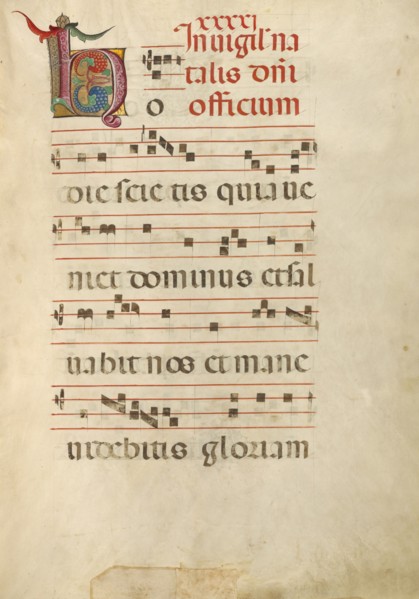 xxxxi
In uigil' na
talis dñi
officium
Ho
die scie tis quia ue
niet dominus et sal
uabit nos et mane
uidebitis gloriam